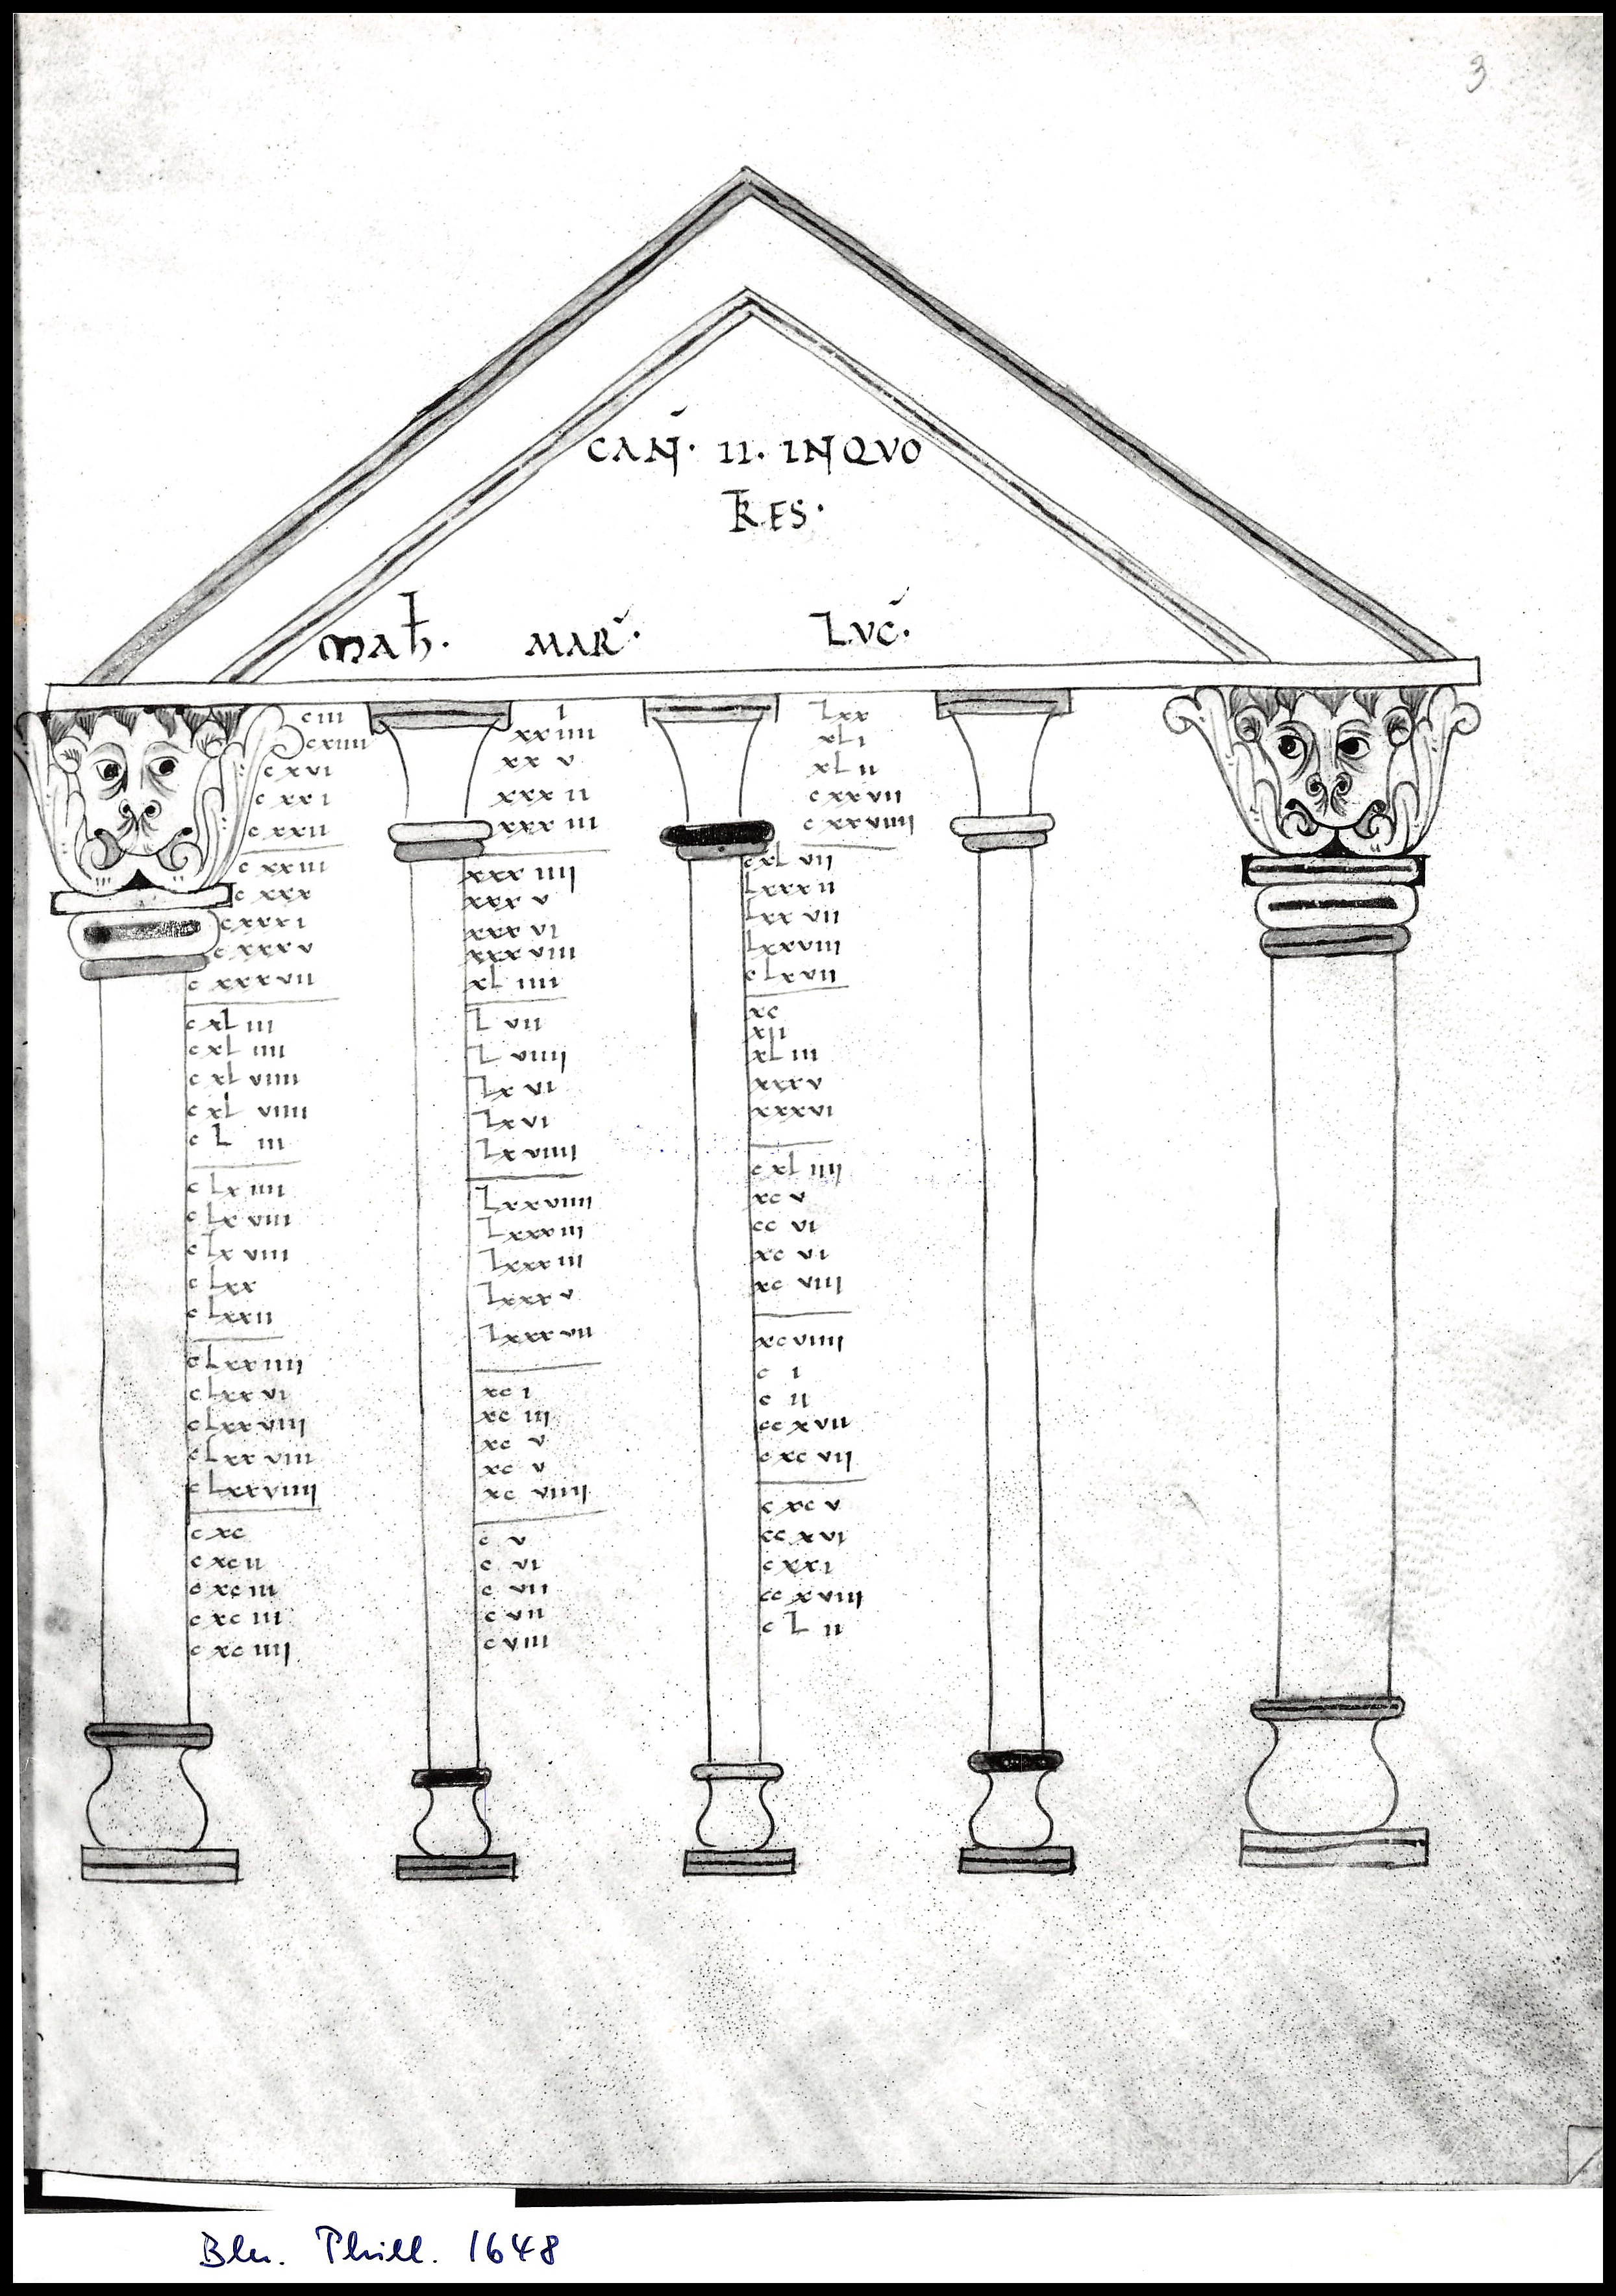 3
CAÑ· II· INQVO
TRES·
Mať̄h· MAR̃· LVC̃·
ciii i Lxx
cxiiii xxiiii xLi
cxvi xxv xLii
cxxi xxxii cxxvii
cxxii xxxiii cxxviiii
cxxiii xxxiiii cxLvii
cxxx xxxv Lxxxii
cxxxi xxxvi Lxxvii
cxxxv xxxviii Lxxviii
cxxxvii xLiiii cLxvii
cxLiii Lvii xc
cxLiiii Lviiii xii
cxLviiii Lxvi xLiii
cxLviiii Lxvi xxxv
cLiii Lxviiii xxxvi
cLxiiii Lxxviiii cxLiiii
cLxviii Lxxxiii xcv
cLxviii Lxxxiii ccvi
cLxx Lxxxv xcvi
cLxxii Lxxxvii xcviii
cLxxiiii xci xcviiii
cLxxvi xciii ci
cLxxviii xcv cii
cLxxviii xcv ccxvii
cLxxviiii xcviiii cxcvii
cxc cv cxcv
cxcii cvi ccxvi
cxciii cvii cxxi
cxciii cvii ccxviii
cxciiii cviii cLii
Bln. Phill. 1648